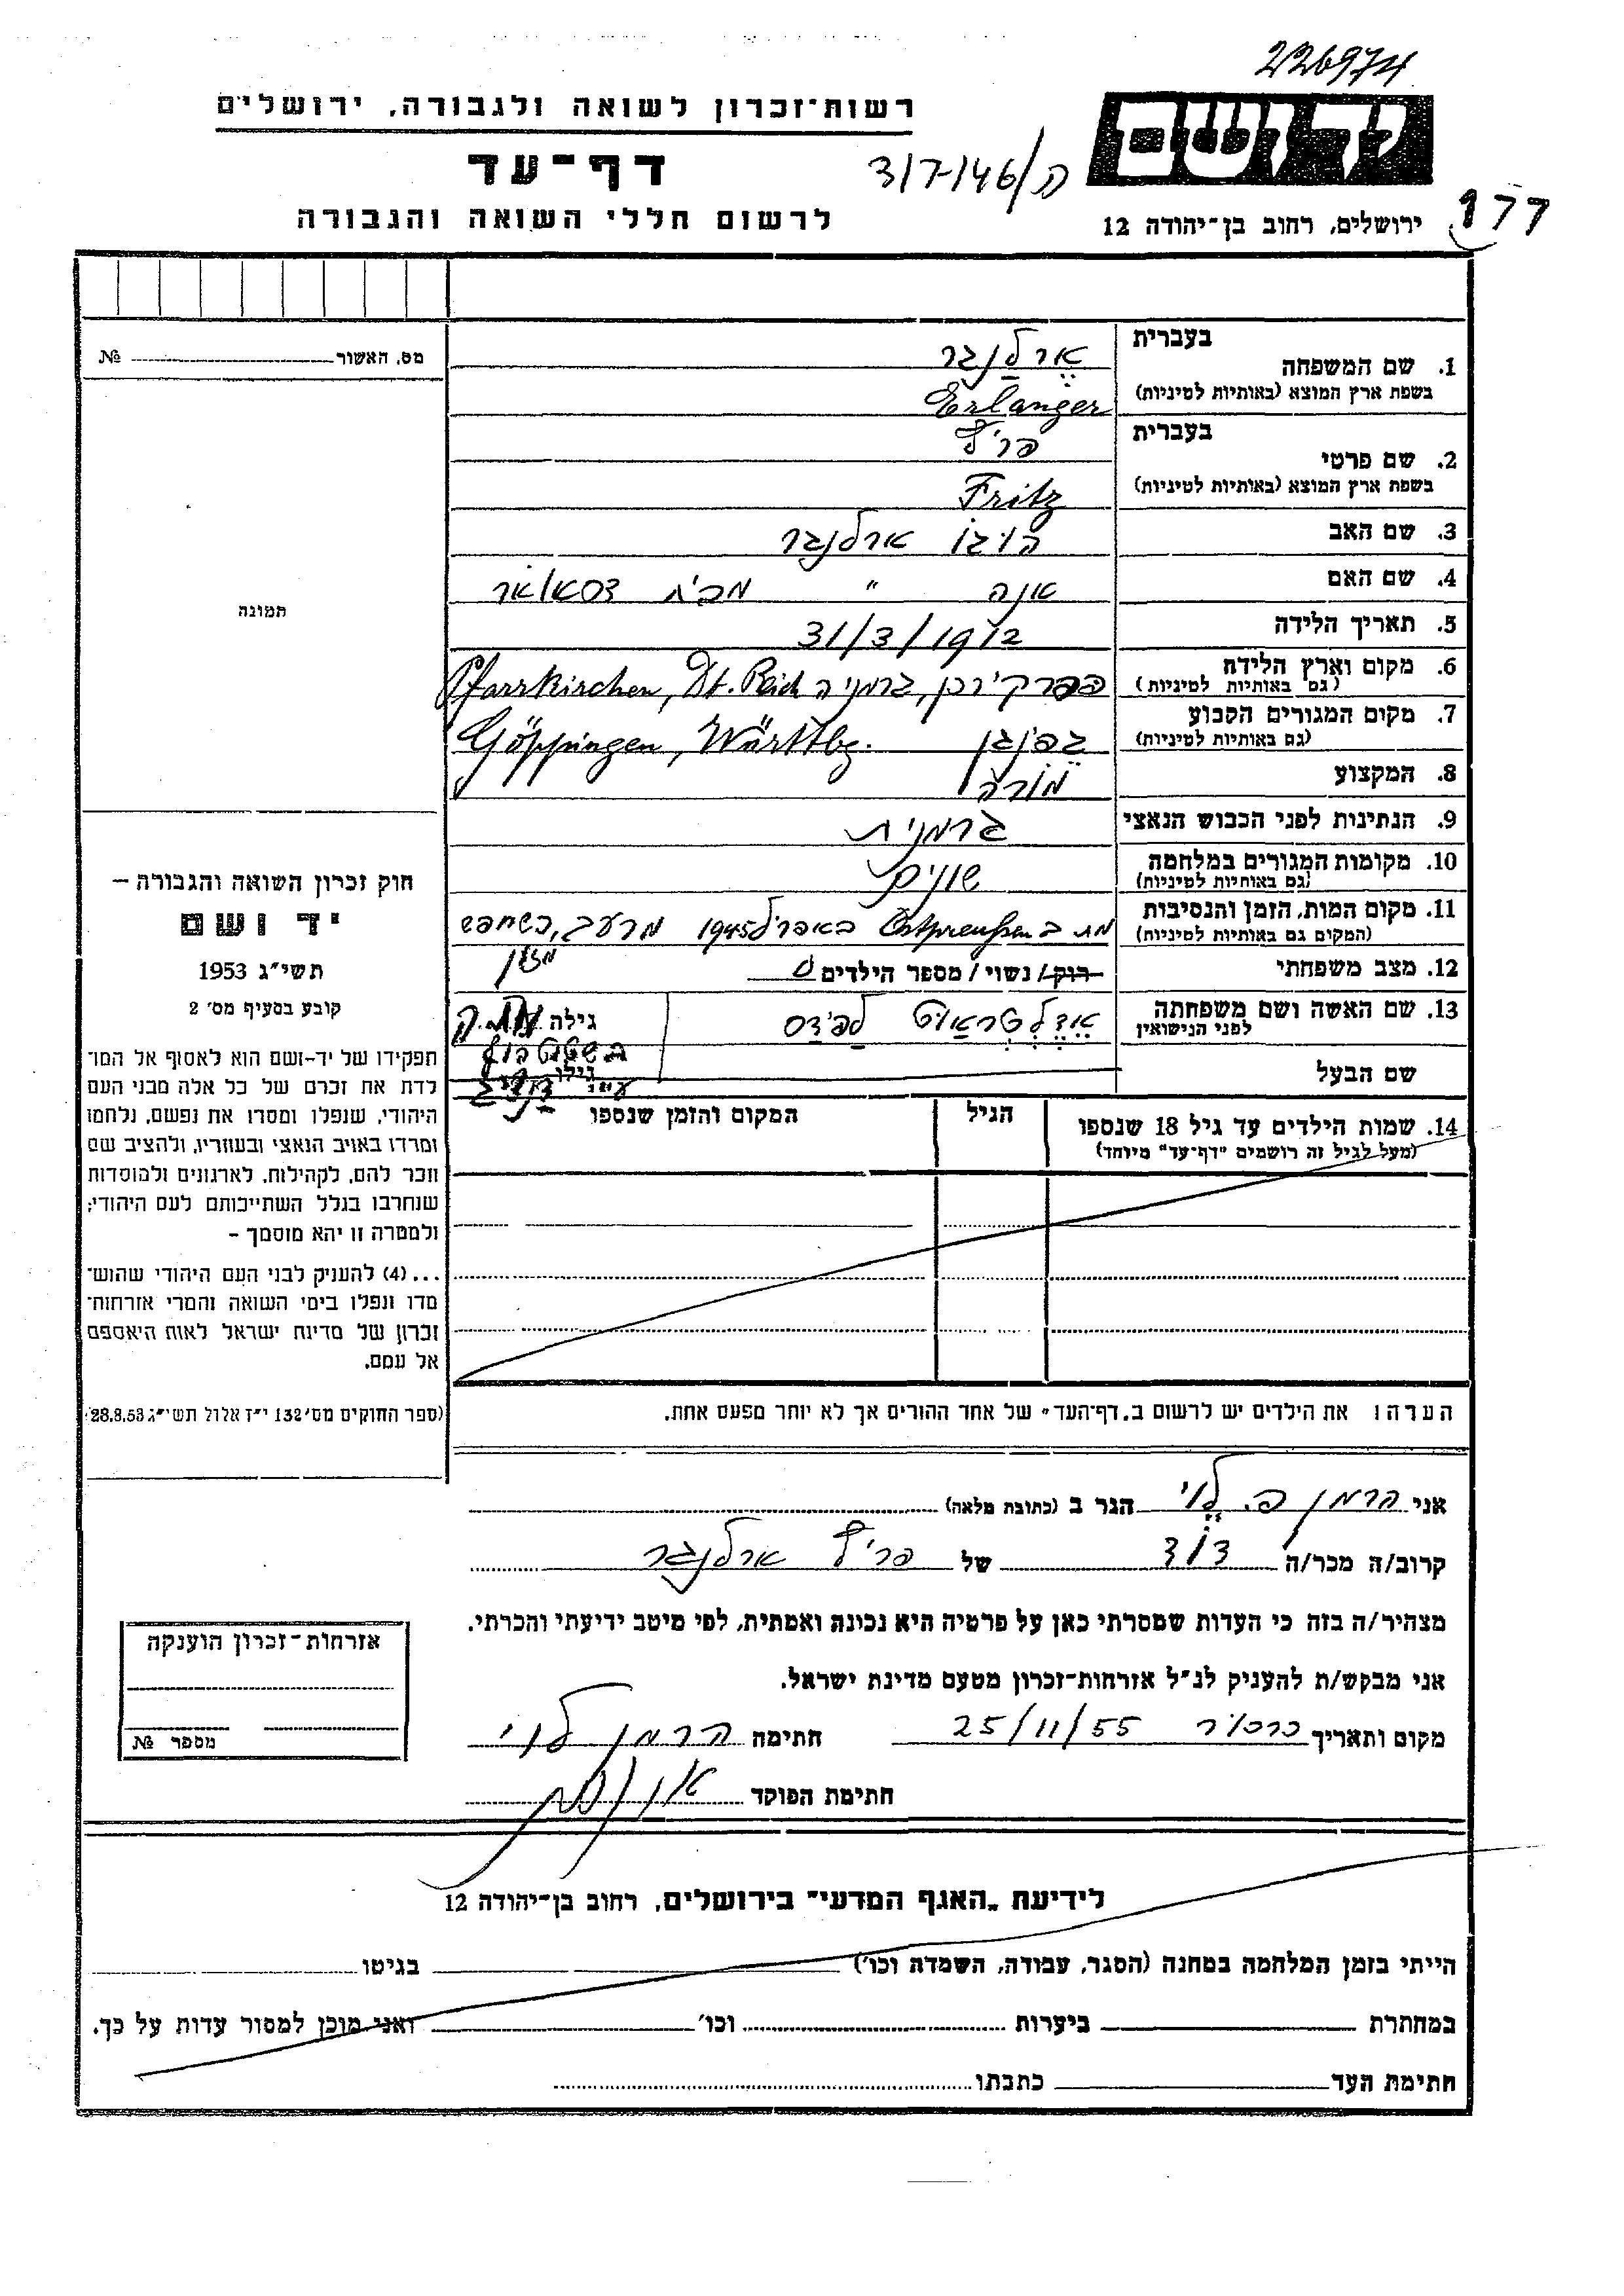 226974
רשות־זכרון לשואה ולגבורה, ירושלים
יד ושם
דף־עד
ה/317-146
לרשום חללי השואה והגבורה
ירושלים, רחוב בן־יהודה 12
177
מס. האשור № 
בעברית
1. שם המשפחה
ארלנגר
בשפת ארץ המוצא (באותיות לטיניות)
Erlanger
בעברית
2. שם פרטי
פריץ
בשפת ארץ המוצא (באותיות לטיניות)
Fritz
3. שם האב
הוגו ארלנגר
4. שם האם
אנה " מבית דסאואר
תמונה
5. תאריך הלידה
31/3/1912
6. מקום וארץ הלידה
(גם באותיות לטיניות)
גרמניה Pfarrkirchen, Dt. Reich
7. מקום המגורים הקבוע
(גם באותיות לטיניות)
גפינגן Göppingen, Württbg.
8. המקצוע
מורה
9. הנתינות לפני הכבוש הנאצי
גרמנית
10. מקומות המגורים במלחמה
(גם באותיות לטיניות)
שונים
11. מקום המות, הזמן והנסיבות
(המקום גם באותיות לטיניות)
מת ב Ostpreußen באפריל 1945 מרעב, כשחפש
מזון
12. מצב משפחתי
רוק/ נשוי/ מספר הילדים 0
13. שם האשה ושם משפחתה
לפני הנישואין
אדלטראוט
גילה
שם הבעל
גילו
14. שמות הילדים עד גיל 18 שנספו
(מעל לגיל זה רושמים "דף־עד" מיוחד)
הגיל
המקום והזמן שנספו
חוק זכרון השואה והגבורה –
יד ושם
תשי״ג 1953
קובע בסעיף מס׳ 2
תפקידו של יד–ושם הוא לאסוף אל המו־
לדת את זכרם של כל אלה מבני העם
היהודי, שנפלו ומסרו את נפשם, נלחמו
ומרדו באויב הנאצי ובעוזריו, ולהציב שם
וזכר להם, לקהילות, לארגונים ולמוסדות
שנחרבו בגלל השתייכותם לעם היהודי;
ולמטרה זו יהא מוסמך –
...(4) להעניק לבני העם היהודי שהוש־
מדו ונפלו בימי השואה והמרי אזרחות־
זכרון של מדינת ישראל לאות היאספם
אל עמם.
(ספר החוקים מס׳ 132 י״ז אלול תשי״ג 28.8.53)
הערה: את הילדים יש לרשום ב„דף־העד״ של אחד ההורים אך לא יותר מפעם אחת.
אני הרמן פ. לוי הגר ב (כתובת מלאה)
קרוב/ה מכר/ה דוד של פריץ ארלנגר
מצהיר/ה בזה כי העדות שמסרתי כאן על פרטיה היא נכונה ואמתית, לפי מיטב ידיעתי והכרתי.
אני מבקש/ת להעניק לנ״ל אזרחות־זכרון מטעם מדינת ישראל.
מקום ותאריך כרכור 25/11/55 חתימה הרמן לוי
חתימת הפוקד
אזרחות־זכרון הוענקה
מספר №
לידיעת „האגף המדעי״ בירושלים, רחוב בן־יהודה 12
הייתי בזמן המלחמה במחנה (הסגר, עבודה, השמדה וכו׳) בגיטו
במחתרת ביערות וכו׳ ואני מוכן למסור עדות על כך.
חתימת העד כתבתו